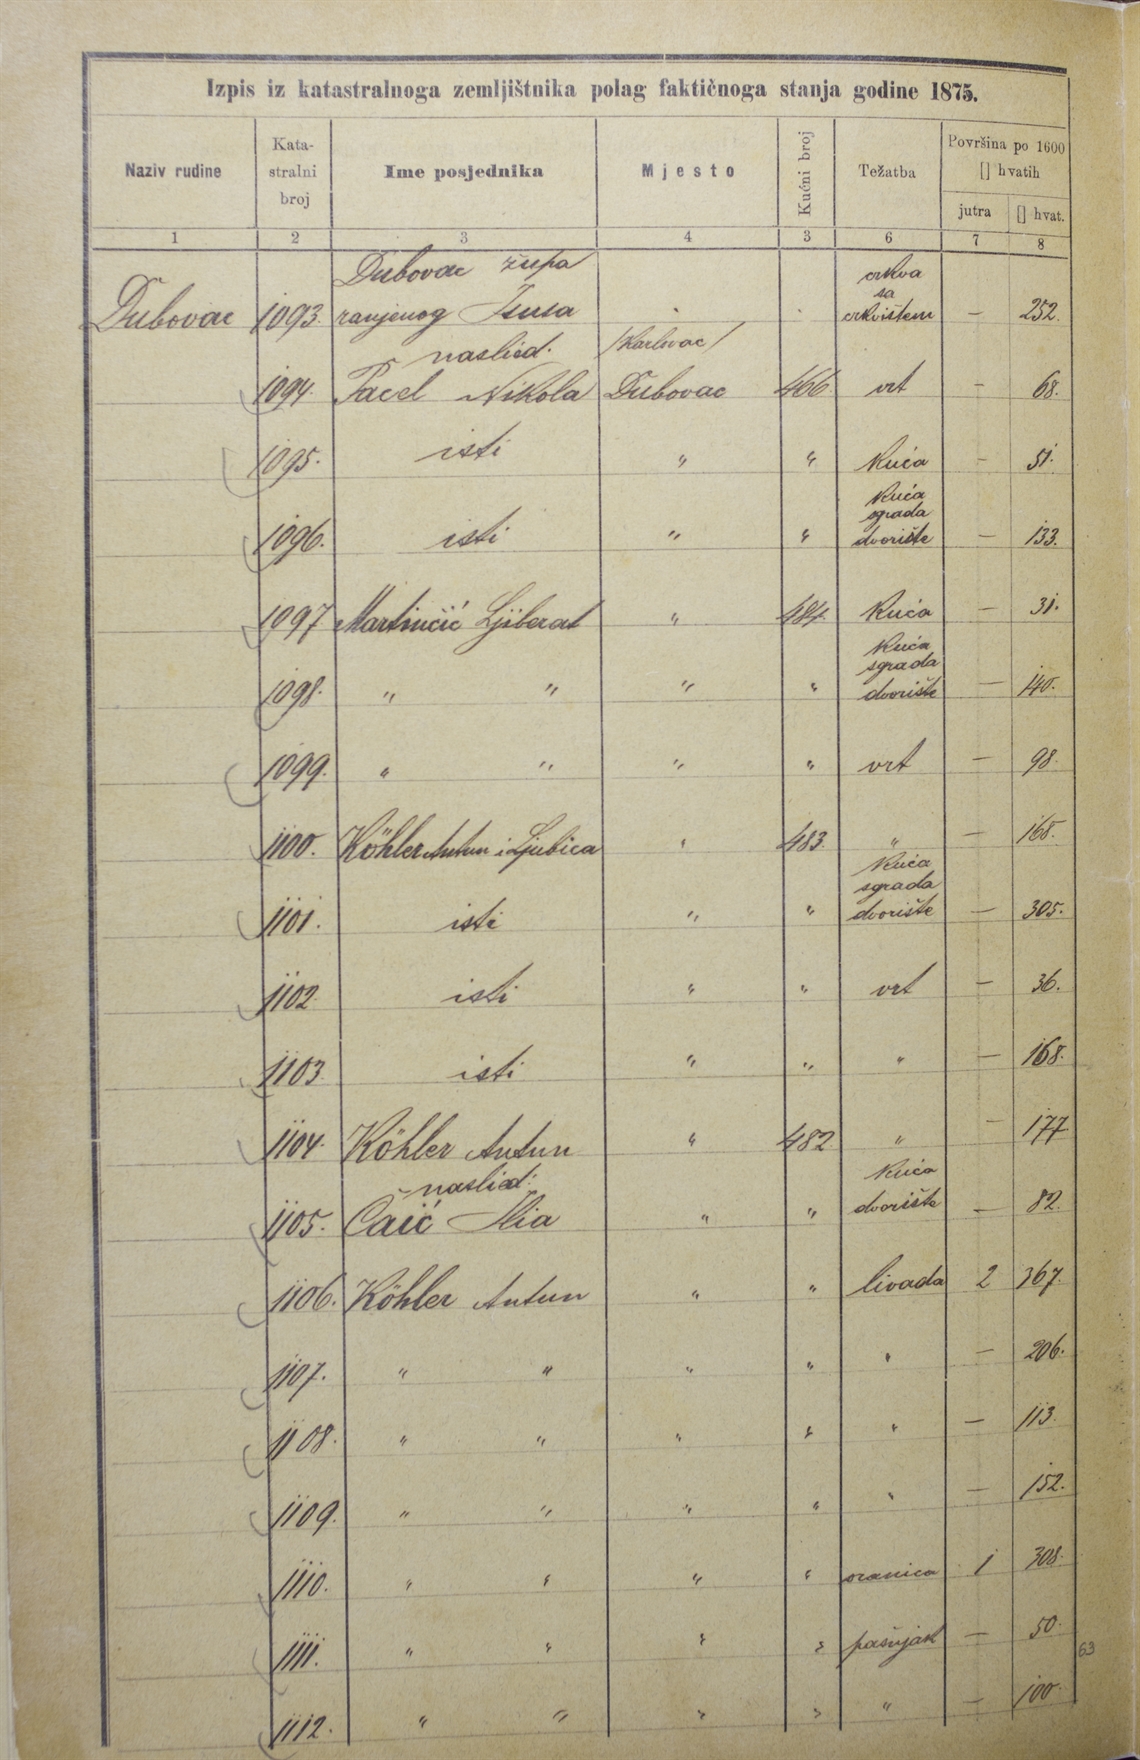 Izpis iz katastralnoga zemljištnika polag faktičnoga stanja godine 1875.
Naziv rudine
Kata-
stralni
broj
Ime posjednika
Mjesto
Kućni broj
Težatba
Površina po 1600
[] hvatih
jutra [] hvat.
1 2 3 4 3 6 7 8
Dubovac župa crkva
sa
Dubovac 1093. ranjenog Isusa . . crkvištem — 252.
naslied. /Karlovac/
1094. Pacel Nikola Dubovac 466 vrt — 68.
1095. isti " " Kuća — 51.
Kuća
sgrada
1096. isti " " dvorište — 133.
1097 Martinčić Ljiberat " 484. Kuća — 31.
Kuća
sgrada
1098. " " " " dvorište — 140.
1099. " " " " vrt — 98.
1100. Köhler Antun i Ljubica " 483. " — 165.
Kuća
sgrada
1101. isti " " dvorište — 305.
1102. isti " " vrt — 36.
1103. isti " " " — 168.
1104. Köhler Antun " 482. " — 177
naslied. Kuća
1105. Čaić Ilia " " dvorište — 82.
1106. Köhler Antun " " livada 2 367.
1107. " " " " " — 206.
1108. " " " " " — 113.
1109. " " " " " — 152.
1110. " " " " oranica 1 308.
1111. " " " " pašnjak — 50.
63
1112. " " " " " — 100.